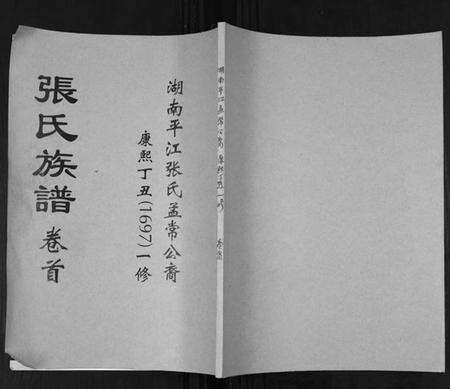 湖南平江張氏孟常公裔
康熙丁丑(1697)一修
張氏族譜 卷首